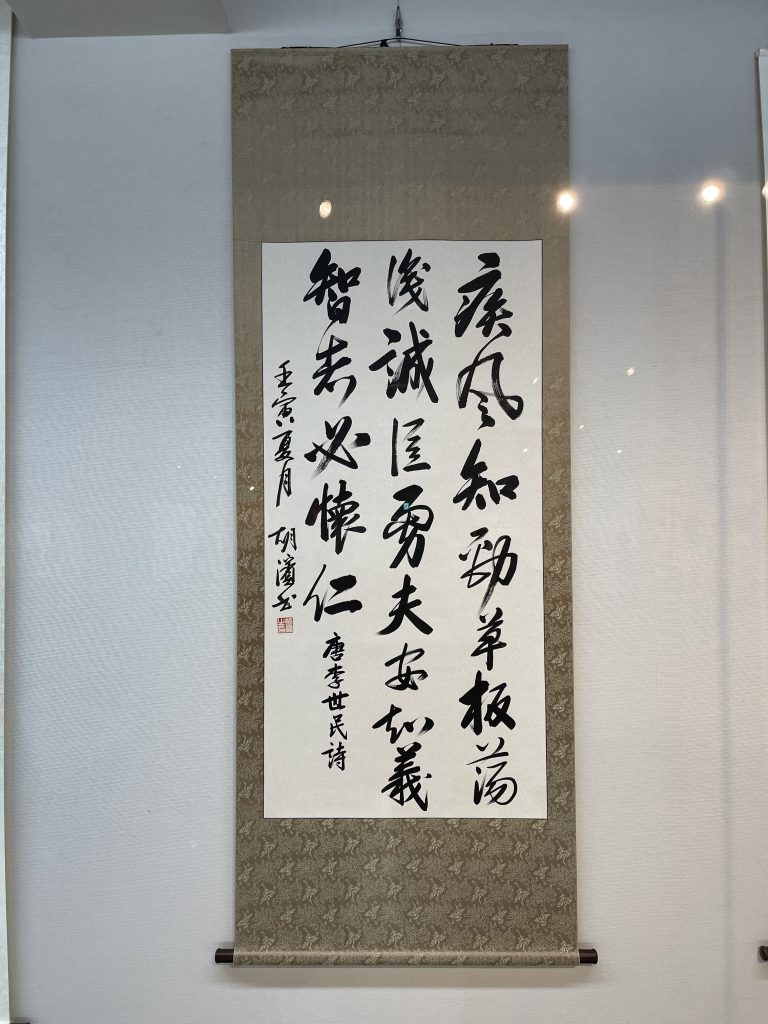 疾風知勁草板蕩
識誠臣勇夫安知義
智者必懷仁
唐李世民詩
壬寅夏月 胡濱书